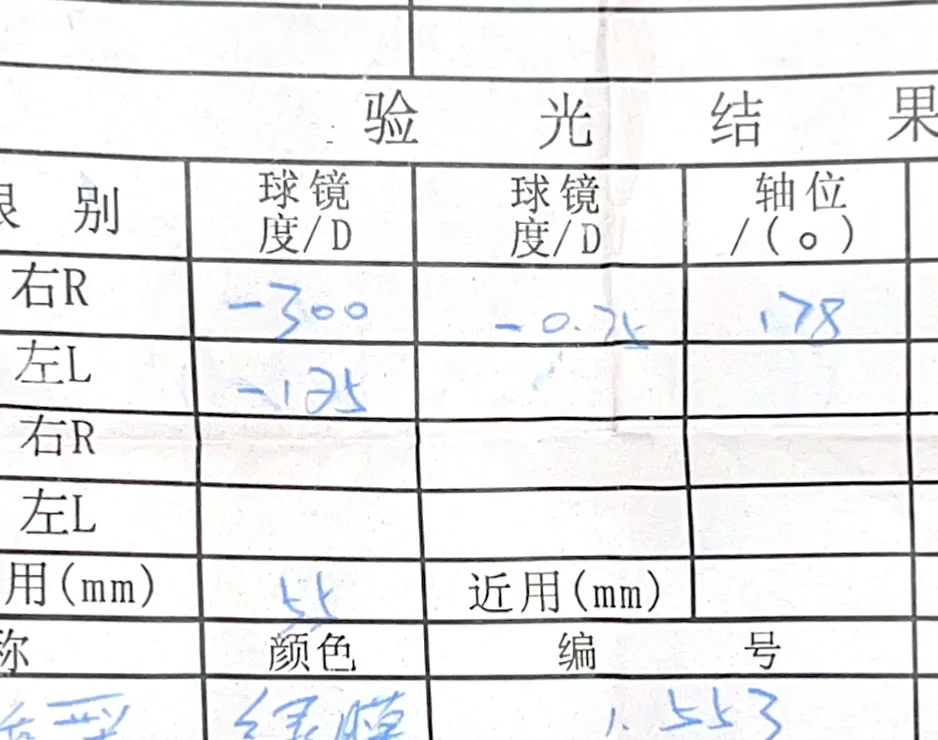 验 光 结 果
眼 别 球镜度/D 球镜度/D 轴位/(o)
右R -300 -0.75 178
左L -125
右R
左L
用(mm) 55 近用(mm)
称 颜色 编 号
绿膜 1.553